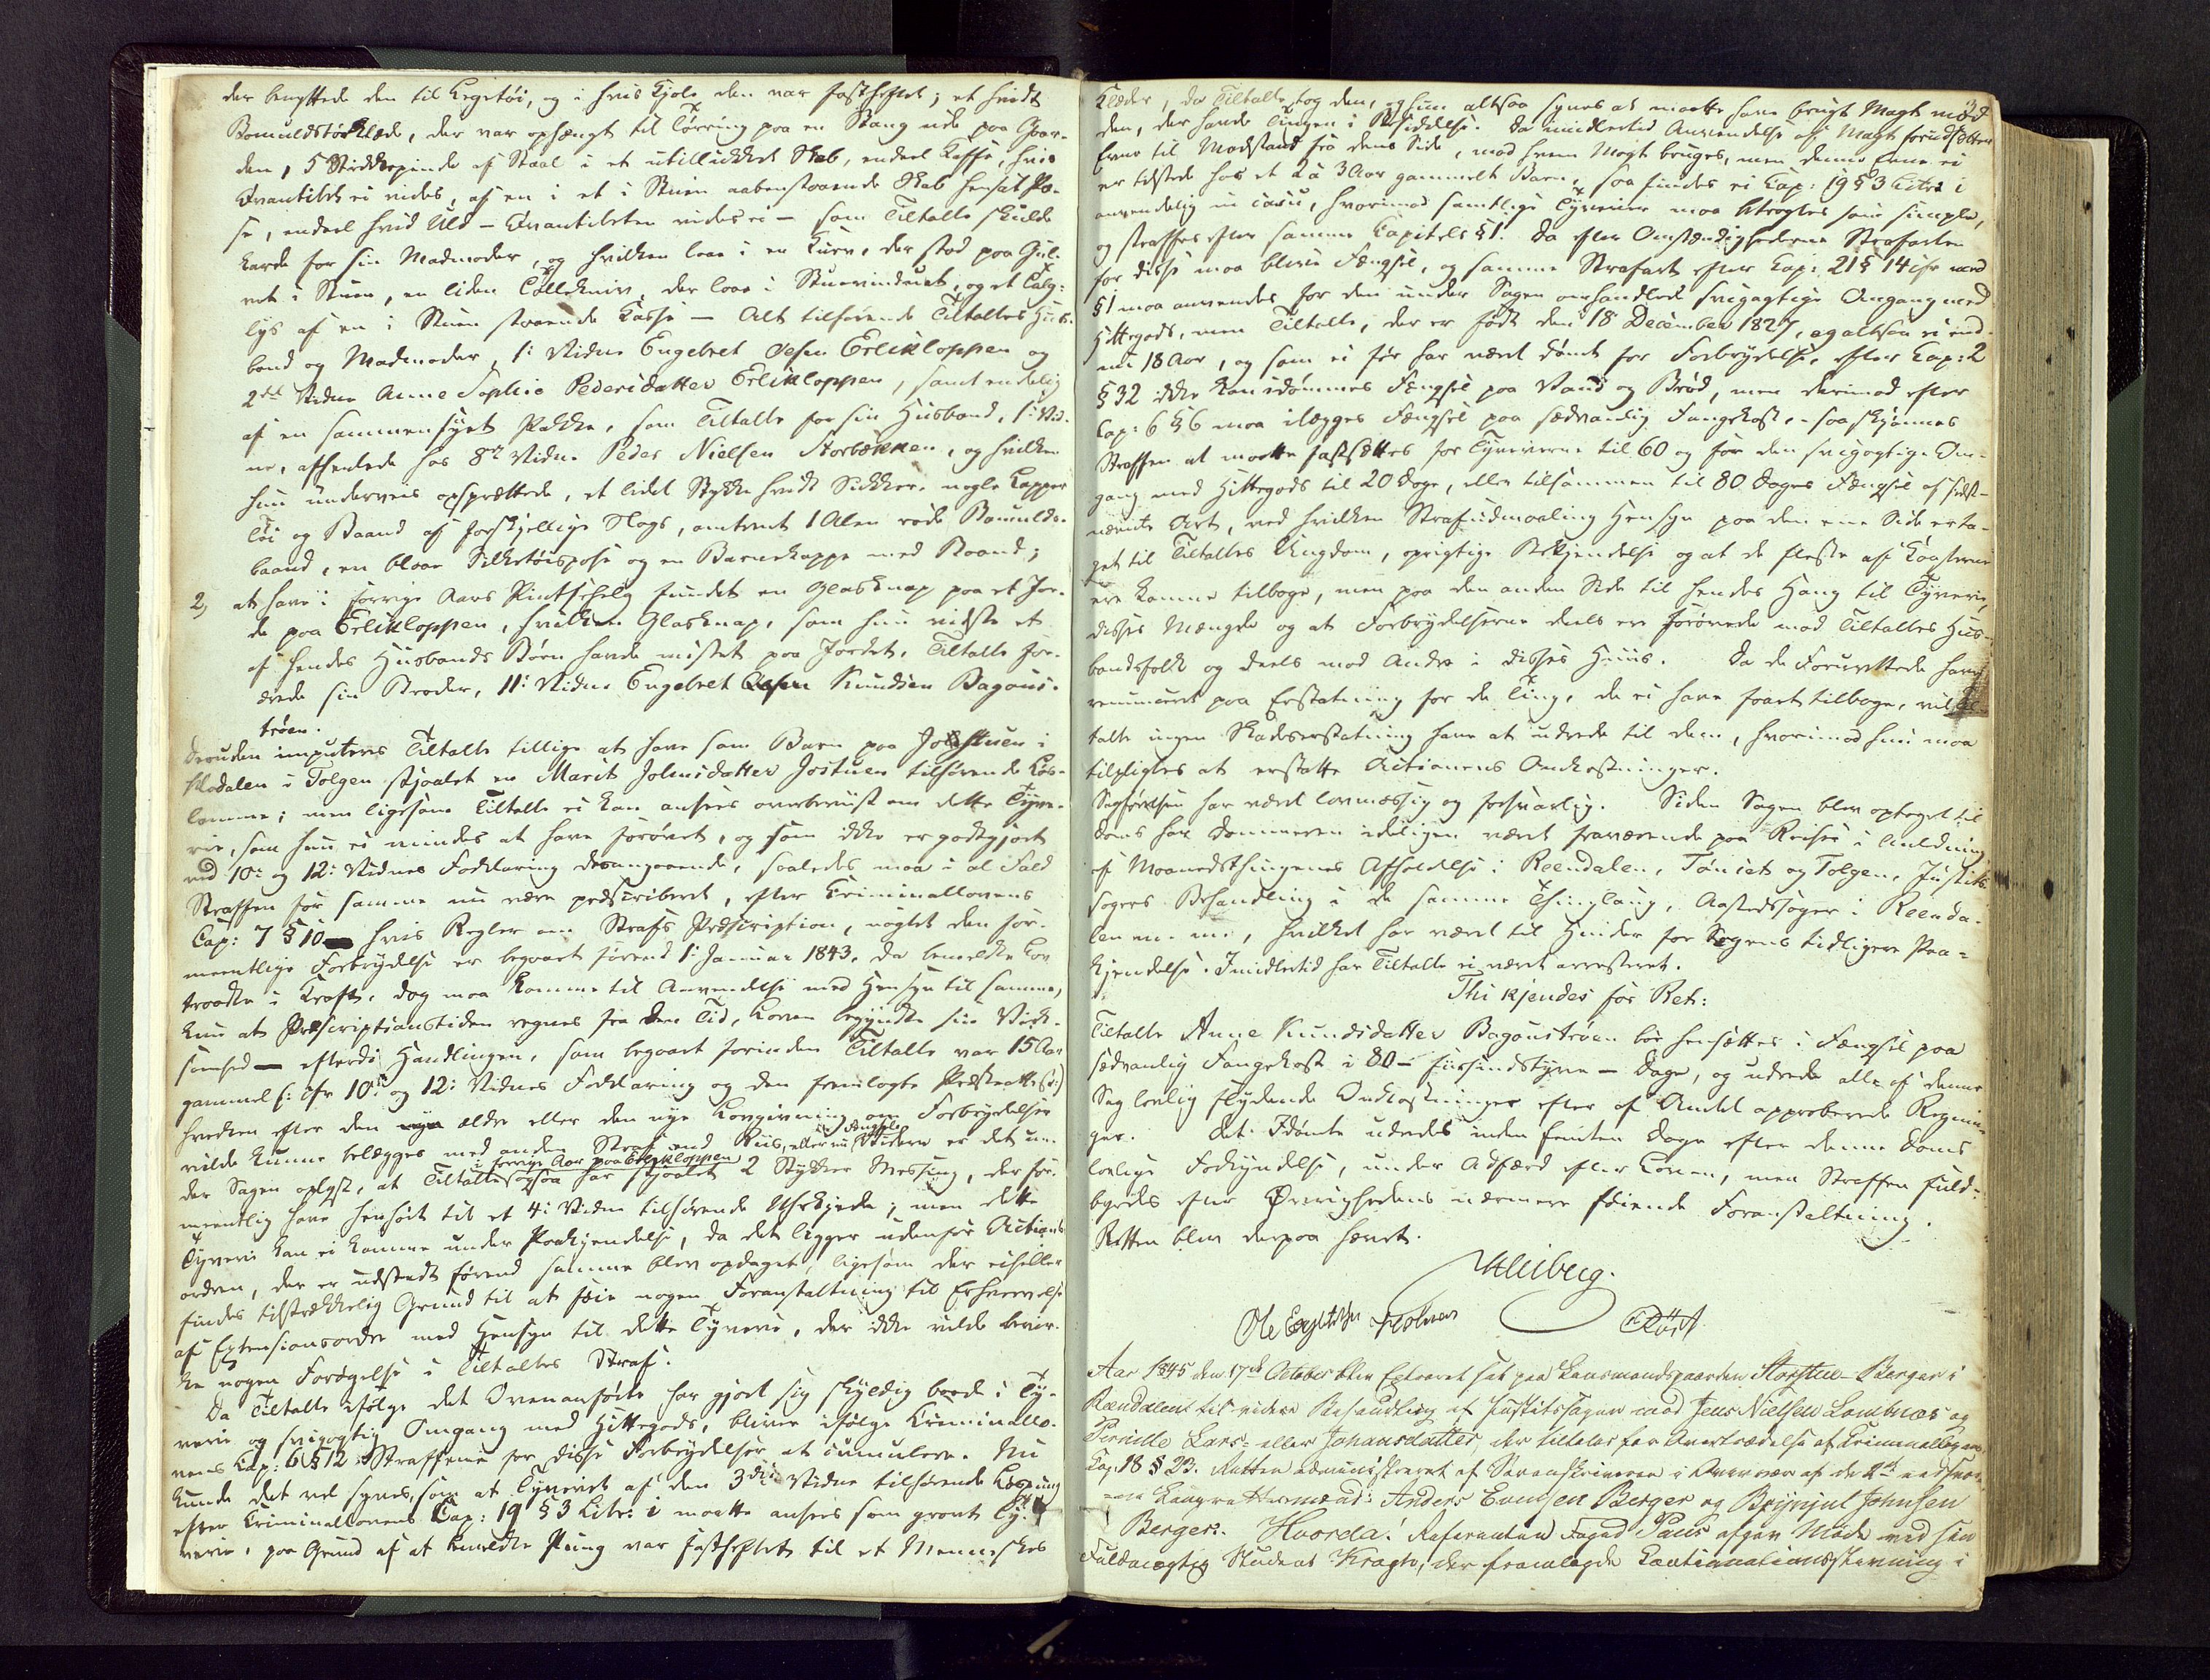 der benyttede den til Legetøi, og i hvis Kjole den var fastheftet; et hvidt
Bomuldstørklæde, der var ophængt til Tørring paa en Stang ude paa Gaar-
den, 5 Strikkepinde af Staal i et utillukket Skab, endeel Kaffe, hvis
Qvantitet ei vides, af en i et i Stuen aabenstaaende Skab hensat Po-
se, endeel hvid Uld – Qvantiteten vides ei – som Tiltalte skulde
karde for sin Madmoder, og hvilken laae i en Kurv, der stod paa Gul-
vet i Stuen, en liden Tolleknív, der laae i Stuevinduet, og et Talg-
lys af en i Stuen staaende Kasse – Alt tilhørende Tiltaltes Hus-
bond og Madmoder, 1: Vidne Engebret Olsen Erlikloppen og
2det Vidne Anne Sophie Pedersdatter Erlikloppen, samt endelig
af en sammensyet Pakke, som Tiltalte for sin Husbond, 1: Vid-
ne, afhentede hos 8de Vidne Peder Nielsen Storbækken, og hvilken
hun underveis opsprættede, et lidet Stykke hvidt Sukker, nogle Lapper
Tøi og Baand af forskjellige Slags, omtrent 1 Alen røde Bomulds-
baand, en blaae Silketøispose og en Barnekappe med Baand;
2, at have i forrige Aars Pintsehelg fundet en Glasknap paa et Jor-
de paa Erlikloppen, hvilken Glasknap, som hun vidste et
af hendes Husbonds Børn havde mistet paa Jordet, Tiltalte for-
ærede sin Broder, 11: Vidne Engebret Knudsen Bagaus-
trøen.
Desuden imputeres Tiltalte tillige at have som Barn paa Jostuen i
Vodalen i Tolgen stjaalet en Marit Johnsdatter Jostuen tilhørende Los-
lomme; men ligesom Tiltalte ei kan ansees overbeviist om dette Tyve-
rie, som hun ei mindes at have forøvet, og som ikke er godtgjort
ved 10: og 12: Vidnes Forklaring desangaaende, saaledes maa i al Fald
Straffen for samme nu være præscriberet, efter Criminallovens
Cap: 7 § 10 hvis Regler om Strafs Præscription, uagtet den for-
meentlige Forbrydelse er begaaet førend 1: Januar 1843, da bemeldte Lov
traadte i Kraft, dog maa komme til Anvendelse med Hensyn til samme,
kun at Præscriptionstiden regnes fra den Tid, Loven begyndte sin Virk-
somhed – efterdi Handlingen, som begaaet forinden Tiltalte var 15 Aar
gammel (: cfr 10: og 12: Vidnes Forklaring og den fremlagte Præsteattest:)
hverken efter den ældre eller den nye Lovgivning om Forbrydelser
vilde kunne belægges med anden Straf end Riis, eller nu Fængsel. Videre er det un-
der Sagen oplyst, at Tiltalte i forrige Aar paa Erlikloppen ogsaa har stjaalet 2 Stykker Messing, der for-
meentlig have henhørt til et 4: Vidne tilhørende Uhrkjede; men dette
Tyverie kan ei komme under Paakjendelse, da det ligger udenfor Actions-
ordren, der er udstedt førend samme blev opdaget, ligesom der eiheller
findes tilstrækkelig Grund til at føie nogen Foranstaltning til Erhvervelse
af Extensionsordre med Hensyn til dette Tyverie, der ikke vilde bevir-
ke nogen Forøgelse i Tiltaltes Straf.
Da Tiltalte ifølge det Ovenanførte har gjort sig skyldig baade i Ty-
verie og svigagtig Omgang med Hittegods, bliver ifølge Criminallo-
vens Cap: 6 § 12 Straffene for disse Forbrydelser at cumulere. Nu
kunde det vel synes, som at Tyveriet af den 3die Vidne tilhørende Lospung
efter Criminallovens Cap: 19 § 3 Litr: i maatte ansees som grovt Ty-
verie, paa Grund af at bemeldte Pung var fastheftet til et Menneskes
Klæder, da Tiltalte tog den, og hun altsaa synes at maatte have brugt Magt mod
den, der havde Tingen i Besiddelse. Da imidlertid Anvendelse af Magt forudsætter
Evne til Modstand fra dens Side, mod hvem Magt bruges, men denne Evne ei
er tilstede hos et 2 à 3 Aar gammelt Barn, saa findes ei Cap: 19 § 3 Litr: i
anvendelig in casu, hvorimod samtlige Tyverier maa betragtes som simple,
og straffes efter samme Capitels § 1. Da efter Omstændighederne Strafarten
for disse maa blive Fængsel, og samme Strafart efter Cap: 21 § 14 cfr med
§ 1 maa anvendes for den under Sagen omhandlede svigagtige Omgang med
Hittegods, men Tiltalte, der er født den 18 December 1827, og altsaa ei end-
nu 18 Aar, og som ei før har været dømt for Forbrydelse, efter Cap: 2
§ 32 ikke kan idømmes Fængsel paa Vand og Brød, men derimod efter
Cap: 6 § 6 maa ilægges Fængsel paa sædvanlig Fangekost, – saa skjønnes
Straffen at maatte fastsættes for Tyverierne til 60 og for den svigagtige Om-
gang med Hittegods til 20 Dage, eller tilsammen til 80 Dages Fængsel af sidst-
nævnte Art, ved hvilken Strafudmaaling Hensyn paa den ene Side er ta-
get til Tiltaltes Ungdom, oprigtige Bekjendelse og at de fleste af Kosterne
ere komne tilbage, men paa den anden Side til hendes Hang til Tyverie,
disses Mængde og at Forbrydelserne deels ere forøvede mod Tiltaltes Hus-
bondsfolk og deels mod Andre i disses Huus. Da de Forurettede have
renunceret paa Erstatning for de Ting, de ei have faaet tilbage, vil Til-
talte ingen Skadeserstatning have at udrede til dem, hvorimod hun maa
tilpligtes at erstatte Actionens Omkostninger.
Sagførelsen har været lovmæssig og forsvarlig. Siden Sagen blev optaget til
Doms har Dommeren ideligen været fraværende paa Reiser i Anledning
af Maanedsthingenes Afholdelse i Reendalen, Tønset og Tolgen, Justits
sagers Behandling i de samme Thinglaug, Aastedssager i Reenda-
len m. m., hvilket har været til Hinder for Sagens tidligere Paa-
kjendelse. Imidlertid har Tiltalte ei været arresteret.
Thi kjendes for Ret:
Tiltalte Anne Knudsdatter Bagaustrøen bør hensættes i Fængsel paa
sædvanlig Fangekost i 80 – fiirsindstyve – Dage, og udrede alle af denne
Sag lovlig flydende Omkostninger efter af Amtet approberede Regnin-
ger. Det Idømte udredes inden femten Dage efter denne Doms
lovlige Forkyndelse, under Adfærd efter Loven, men Straffen fuld-
byrdes efter Øvrighedens nærmere føiende Foranstaltning.
Retten blev derpaa hævet.
Heiberg.
Ole Holmen
Aar 1845 den 17de October blev Extraret sat paa Lensmandsgaarden Storstue-Berger i
Rændalen til videre Behandling af Justitssagen mod Jens Nielsen Lombnæs og
Pernille Lars- eller Johansdatter, der tiltales for Overtrædelse af Criminallovens
Cap. 18 § 23. Retten administreret af Sorenskriveren i Overvær af de 2de edsvor-
ne Laugrettesmænd: Anders Evensen Berger og Brynjul Johnsen
Berger. Hvorda! Referenten Foged Paus afgav Møde ved sin
Fuldmægtig Student Kragh, der fremlagde Continuationsstevning i